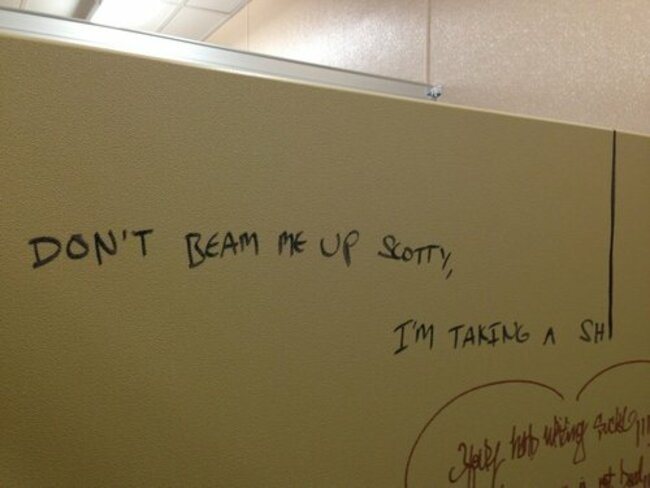 DON'T BEAM ME UP SCOTTY,
I'M TAKING A SHI
Your hand writing sucks!!!
is not bad